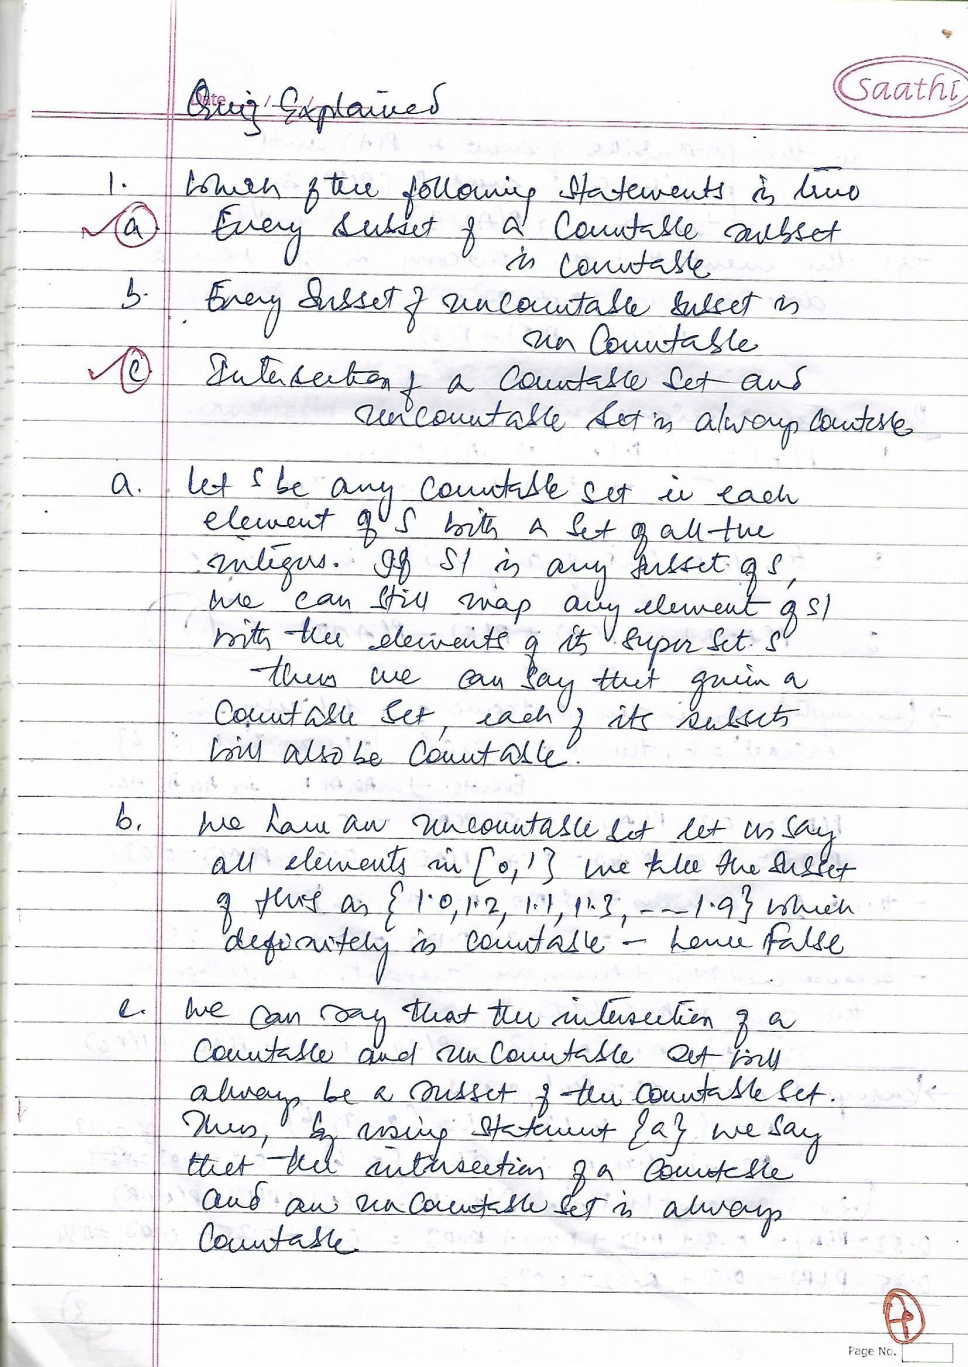 Saathi
Date / /
Quiz Explained
1. Which of the following Statements is true
a Every subset of a Countable subset
is countable
b. Every Subset of uncountable Subset is
un Countable
c Intersection of a Countable Set and
uncountable Set is always countable
a. Let S be any Countable Set ie each
element of S with a Set of all the
integers. If S1 is any subset of S,
we can still map any element of S1
with the elements of its Super Set. S
thus we can say that given a
Countable Set, each of its subsets
will also be Countable.
b. We have an uncountable set let us say
all elements in [0,1} we take the subset
of this as {1.0, 1.2, 1.1, 1.3, --- 1.9} which
definitely is countable - hence False
c. We can say that the intersection of a
Countable and unCountable Set will
always be a subset of the Countable Set.
Thus, by using Statement {a} we say
that the intersection of a Countable
and an unCountable Set is always
Countable
7
Page No.